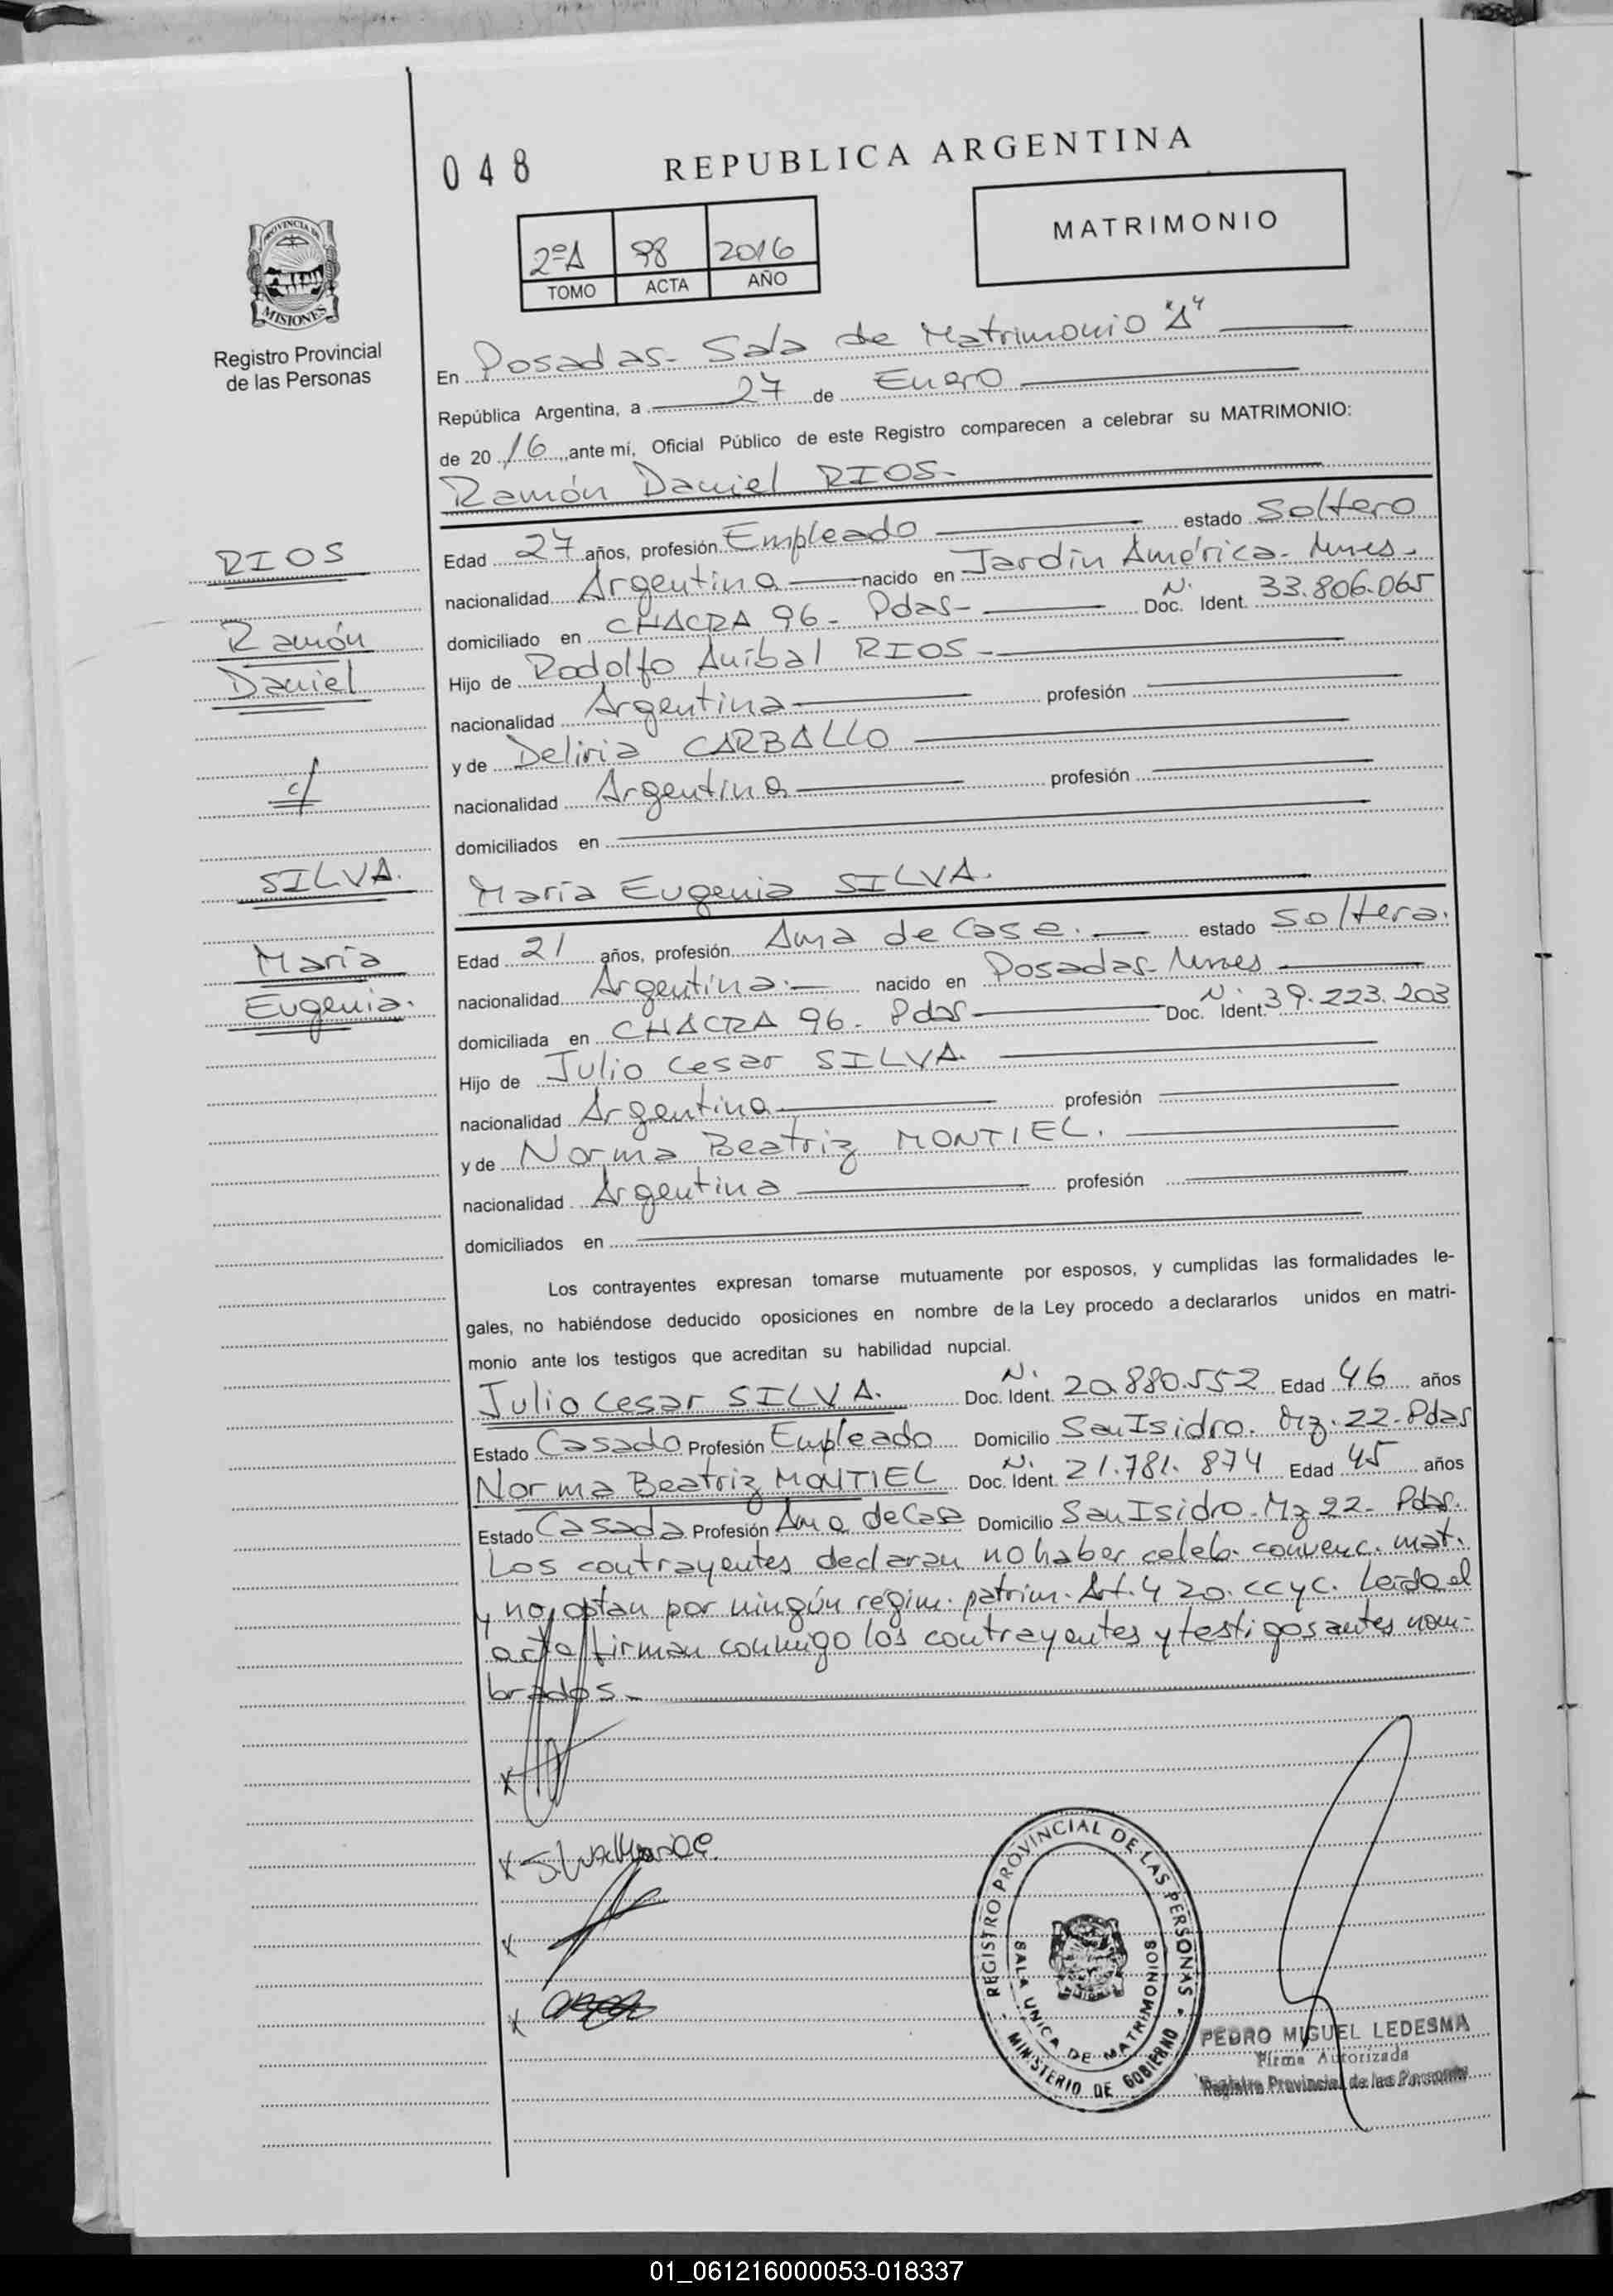 048
REPUBLICA ARGENTINA
MATRIMONIO
2ºA 98 2016
TOMO ACTA AÑO
PROVINCIA DE
MISIONES
Registro Provincial
de las Personas
En Posadas- Sala de Matrimonio "A"
República Argentina, a 27 de Enero
de 20 16 ,ante mí, Oficial Público de este Registro comparecen a celebrar su MATRIMONIO:
Ramón Daniel RIOS-
RIOS
Ramón
Daniel
c/
SILVA.
María
Eugenia.
Edad 27 años, profesión Empleado estado Soltero
nacionalidad Argentina nacido en Jardín América- Mnes-
domiciliado en CHACRA 96- Pdas- Doc. Ident. N. 33.806.065
Hijo de Rodolfo Aníbal RIOS-
nacionalidad Argentina profesión
y de Deliria CARBALLO
nacionalidad Argentina profesión
domiciliados en
María Eugenia SILVA.
Edad 21 años, profesión Ama de Casa. estado Soltera.
nacionalidad Argentina.- nacido en Posadas- Mnes
domiciliada en CHACRA 96- Pdas- Doc. Ident. N. 39.223.203
Hijo de Julio Cesar SILVA.
nacionalidad Argentina profesión
y de Norma Beatriz MONTIEL.
nacionalidad Argentina profesión
domiciliados en
Los contrayentes expresan tomarse mutuamente por esposos, y cumplidas las formalidades le-
gales, no habiéndose deducido oposiciones en nombre de la Ley procedo a declararlos unidos en matri-
monio ante los testigos que acreditan su habilidad nupcial.
Julio Cesar SILVA. Doc. Ident. N. 20.880.552 Edad 46 años
Estado Casado Profesión Empleado Domicilio San Isidro. Mz. 22- Pdas
Norma Beatriz MONTIEL Doc. Ident. N. 21.781.874 Edad 45 años
Estado Casada Profesión Ama de Casa Domicilio San Isidro- Mz 22- Pdas.
Los contrayentes declaran no haber celeb. convenc. mat.
y no optan por ningún régim. patrim. Art. 420. CCyC. Leída el
acta firman conmigo los contrayentes y testigos antes nom-
brados.-
x
x
x
x
REGISTRO PROVINCIAL DE LAS PERSONAS
SALA UNICA DE MATRIMONIOS
MINISTERIO DE GOBIERNO
PEDRO MIGUEL LEDESMA
Firma Autorizada
Registro Provincial de las Personas
01_061216000053-018337